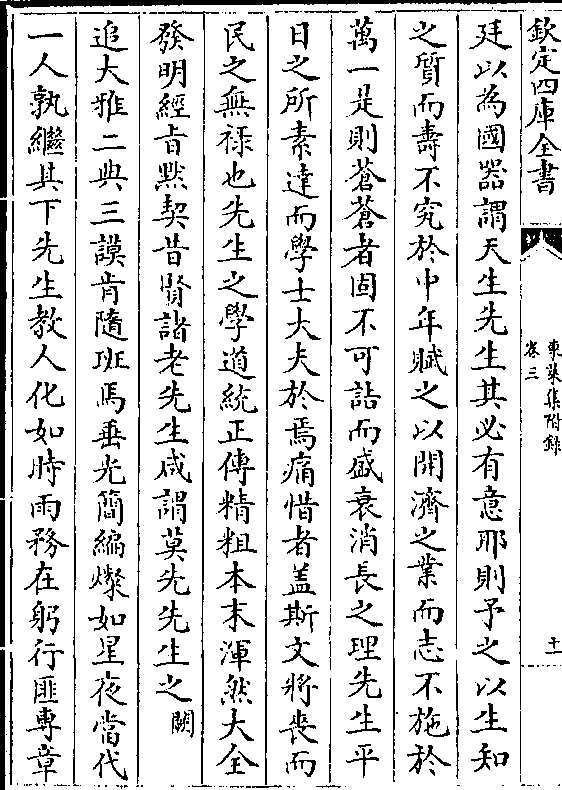 欽定四庫全書
東萊集附錄
卷三
十一
廷以為國器謂天生先生其必有意耶則予之以生知
之質而壽不究於中年賦之以開濟之業而志不施於
萬一是則蒼蒼者固不可詰而盛衰消長之理先生平
日之所素達而學士大夫於焉痛惜者盖斯文將喪而
民之無祿也先生之學道統正傳精粗本末渾然大全
發明經旨黙契昔賢諸老先生咸謂莫先先生之闕
追大雅二典三謨肯隨班馬垂光簡編燦如星夜當代
一人孰繼其下先生教人化如時雨務在躬行匪專章